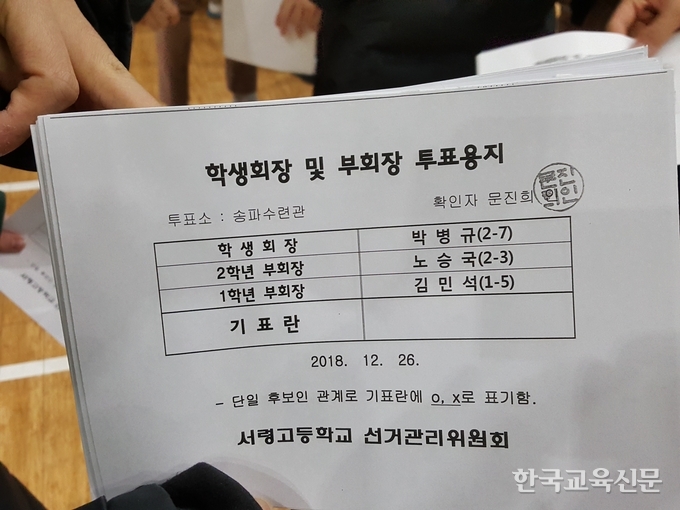 학생회장 및 부회장 투표용지
투표소 : 송파수련관 확인자 문진희
학 생 회 장 박 병 규(2-7)
2학년 부회장 노 승 국(2-3)
1학년 부회장 김 민 석(1-5)
기 표 란
2018. 12. 26.
- 단일 후보인 관계로 기표란에 o, x로 표기함.
서령고등학교 선거관리위원회
한국교육신문